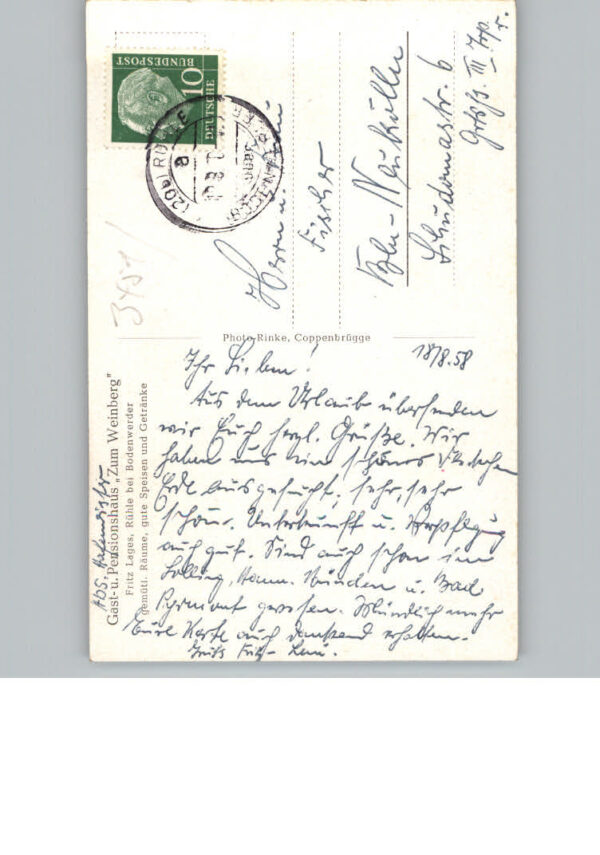 10
DEUTSCHE
BUNDESPOST
(20a) RÜHLE
a
Herrn u. Frau
Fischer
Bln-Neukölln
6
Gartfs. III Trp. r.
3451
Photo-Rinke, Coppenbrügge
18/8.58
Ihr Lieben!
Aus dem Urlaub übersenden
wir Euch herzl. Grüße. Wir
haben uns ein schönes Fleckchen
Erde ausgesucht, sehr, sehr
schön. Unterkunft u. Verpflegug
auch gut. Sind auch schon im
Solling, Hann. Münden u. Bad
Pyrmont gewesen. Mündlich mehr
Eure Karte auch dankend erhalten.
Gruß Fritz - Leni.
Abs.
Gast- u. Pensionshaus „Zum Weinberg"
Fritz Lages, Rühle bei Bodenwerder
gemütl. Räume, gute Speisen und Getränke